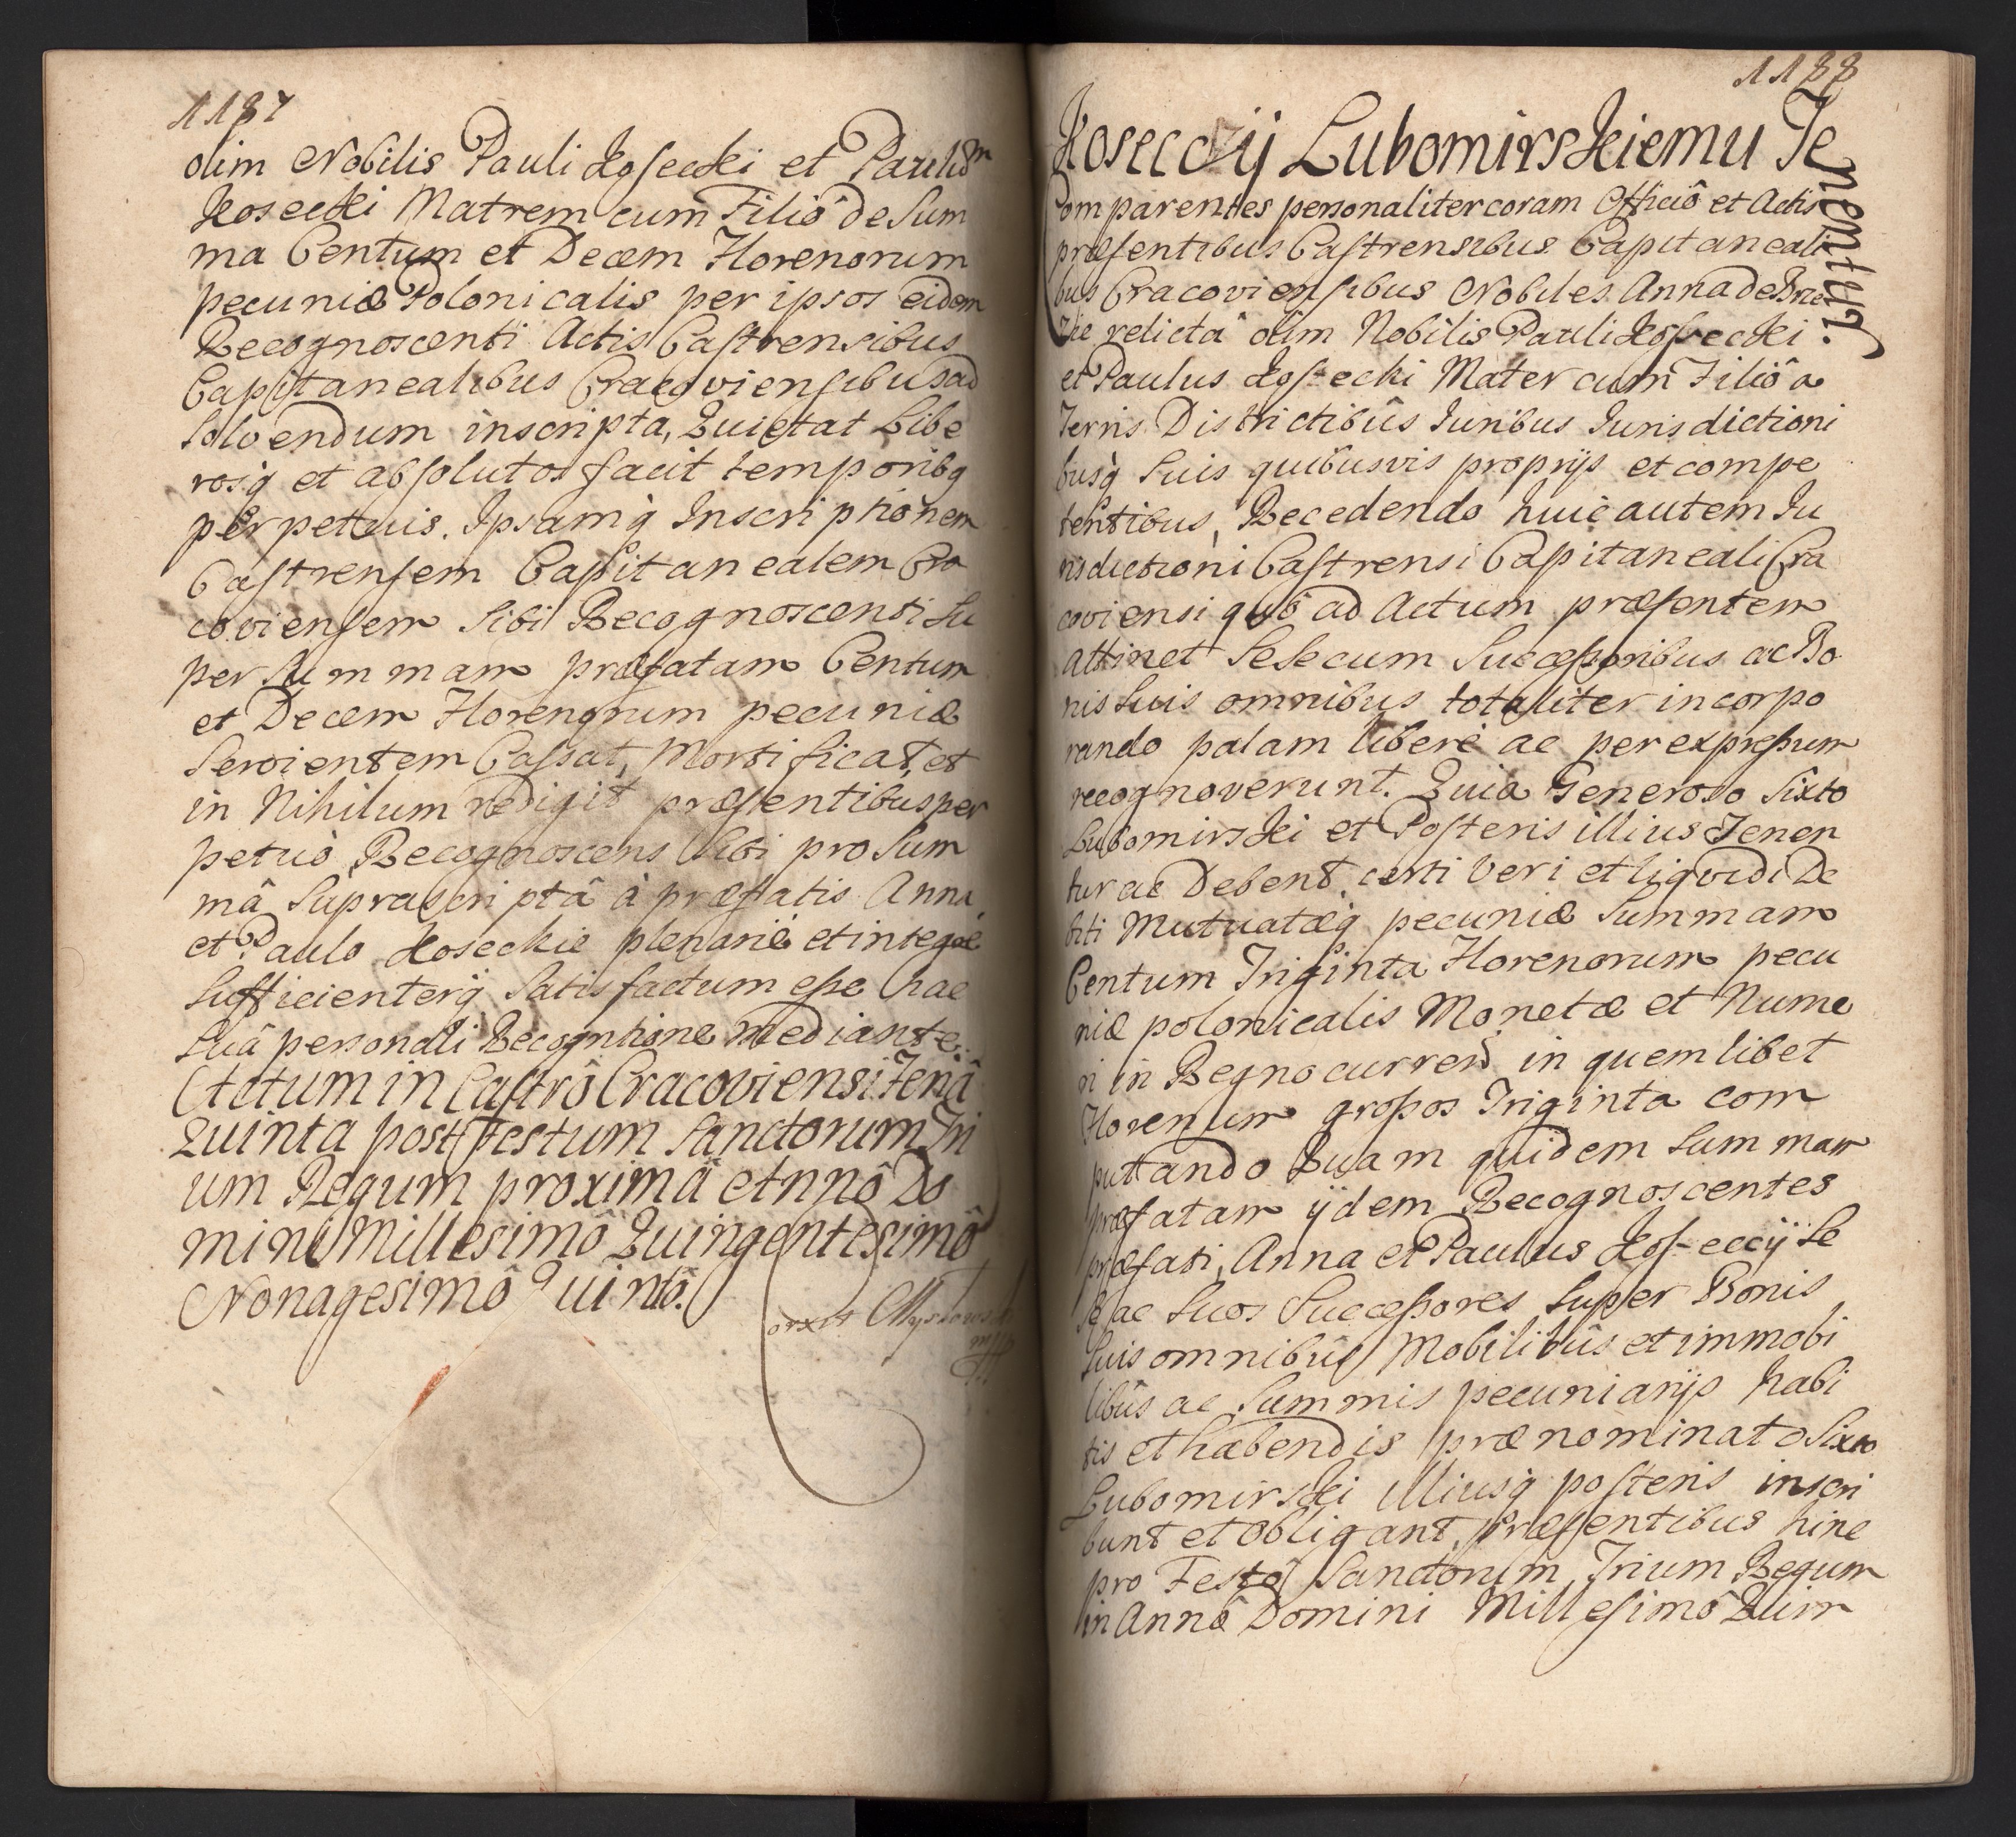 1187
olim Nobilis Pauli Kosecki et Paulum
Kosecki Matrem cum Filiô de Sum
ma Centum et Decem Florenorum
pecuniæ Polonicalis per ipsos eidem
Recognoscenti Actis Castrensibus
Capitanealibus Cracoviensibus ad
Solvendum inscripta, Quietat Libe
rosq et absolutos facit temporibq
perpetuis. Ipsamq Inscriptionem
Castrensem Capitanealem Cra
coviensem Sibi Recognoscenti Su
per Summam præfatam Centum
et Decem Florenorum pecuniæ
Servientem Cassat, Mortificat, et
in Nihilum redigit præsentibus per
petuò, Recognoscens Sibi pro Sum
mâ Suprascriptâ à præfatis Anna
et Paulo Koseckie plenariè et integrè
Sufficienterq Satisfactum esse hac
Suâ personali Recognitione mediante.
Actum in Castrô Cracoviensi Feriâ
Quinta post Festum Sanctorum Tri
um Regum proximâ Annô Do
mini Millesimô Quingentesimô
Nonagesimô Quintô.
1188
Koseccÿ Lubomirskiemu Te
nentur.
Comparentes personaliter coram Officiô et Actis
præsentibus Castrensibus Capitaneali
bus Cracoviensibus Nobiles Anna de Brze
zie relicta olim Nobilis Pauli Kossecki
et Paulus Kossecki Mater cum Filiô a
Terris Districtibus Iuribus Iurisdictioni
busq Suis quibusvis proprÿs et compe
tentibus, Recedendo huic autem Iu
risdictioni Castrensi Capitaneali Cra
coviensi quô ad Actum præsentem
attinet Sese cum Successoribus ac Bo
nis Suis omnibus totaliter incorpo
rando palam liberè ac per expressum
recognoverunt. Quia Generoso Sixto
Lubomirski et Posteris illius Tenen
tur ac Debent, certi veri et liqvidi De
biti Mutuatæq pecuniæ Summam
Centum Triginta Florenorum pecu
niæ polonicalis Monetæ et Nume
ri in Regno curren in quemlibet
Florenum grossos Triginta com
puttando Quam quidem Summam
præfatam ÿdem Recognoscentes
præfati, Anna et Paulus Kosseccÿ Se
Se ac Suos Successores Super Bonis
Suis omnibus Mobilibus et immobi
libus ac Summis pecuniarÿs habi
tis et habendis prænominato Sixto
Lubomirski illiusq posteris inscri
bunt et obligant, Præsentibus hinc
pro Festô Sanctorum Trium Regum
in Annô Domini Millesimô Quin